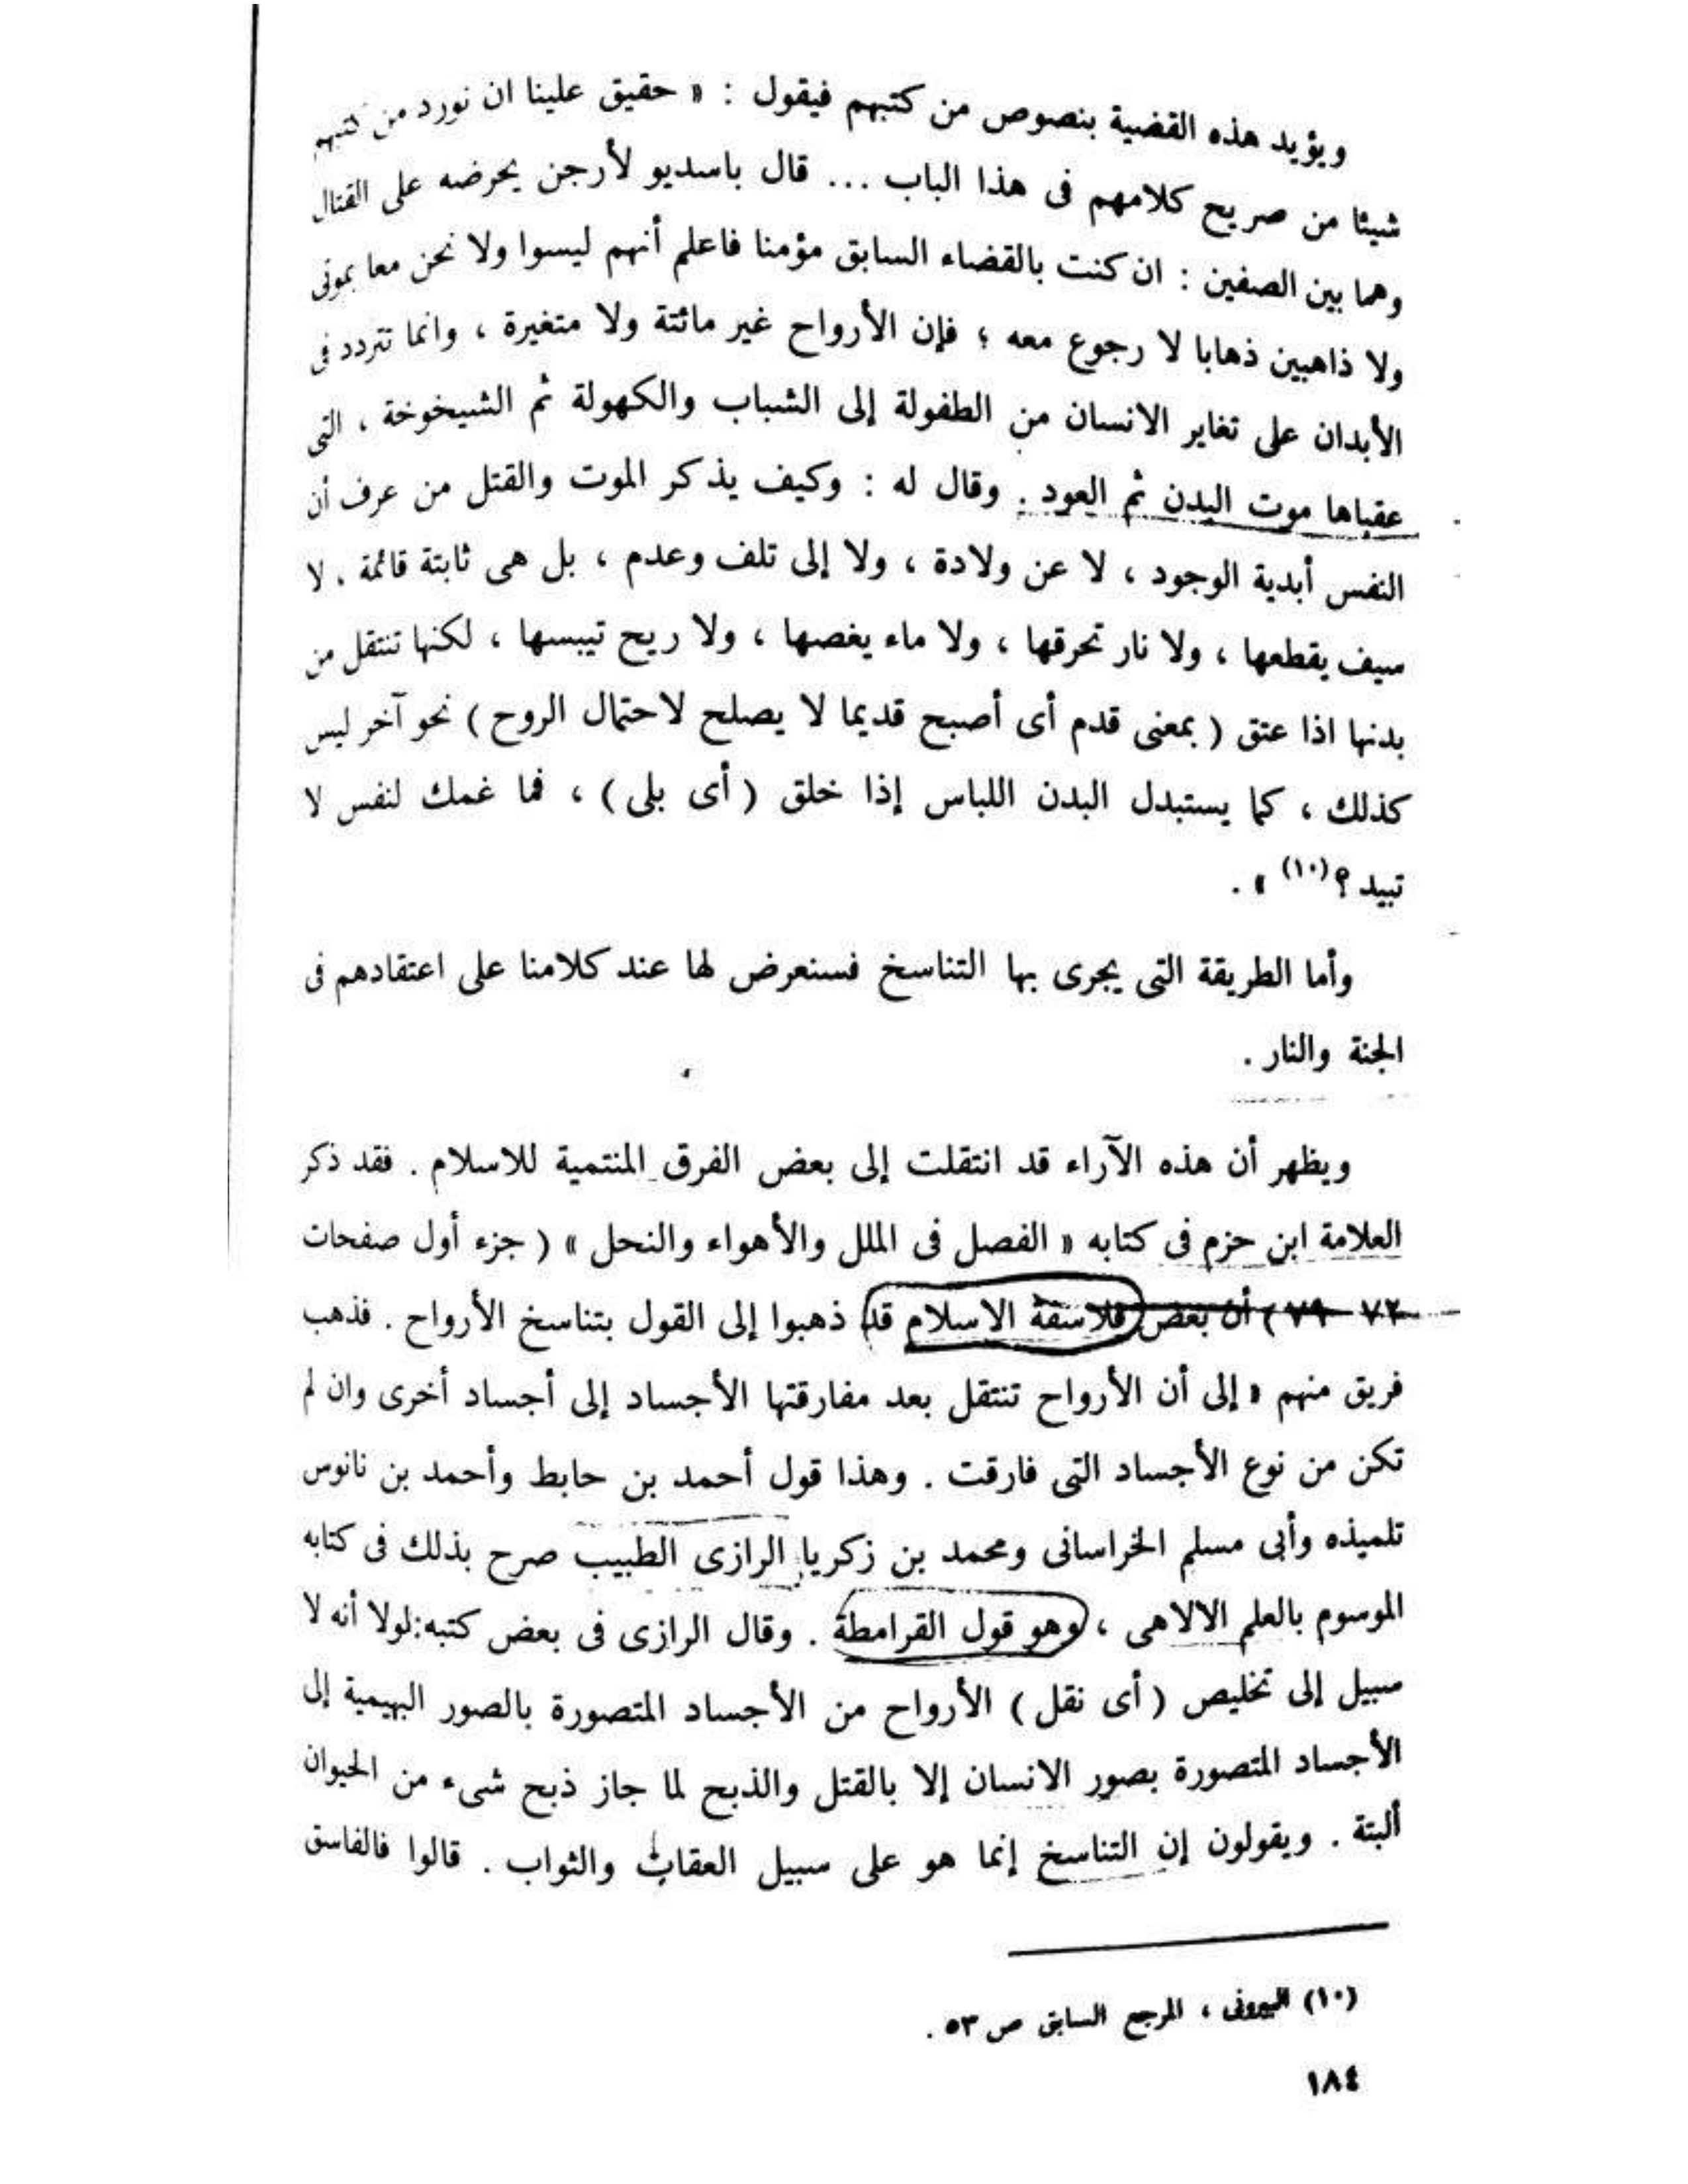 ويؤيد هذه القضية بنصوص من كتبهم فيقول : « حقيق علينا ان نورد من كتبهم
شيئا من صريح كلامهم فى هذا الباب ... قال باسديو لأرجن يحرضه على القتال
وهما بين الصفين : ان كنت بالقضاء السابق مؤمنا فاعلم أنهم ليسوا ولا نحن معا بموتى
ولا ذاهبين ذهابا لا رجوع معه ؛ فإن الأرواح غير مائتة ولا متغيرة ، وانما تتردد فى
الأبدان على تغاير الانسان من الطفولة إلى الشباب والكهولة ثم الشيخوخة ، التى
عقباها موت البدن ثم العود . وقال له : وكيف يذكر الموت والقتل من عرف أن
النفس أبدية الوجود ، لا عن ولادة ، ولا إلى تلف وعدم ، بل هى ثابتة قائمة ، لا
سيف يقطعها ، ولا نار تحرقها ، ولا ماء يغصها ، ولا ريح تيبسها ، لكنها تنتقل من
بدنها اذا عتق ( بمعنى قدم أى أصبح قديما لا يصلح لاحتمال الروح ) نحو آخر ليس
كذلك ، كما يستبدل البدن اللباس إذا خلق ( أى بلى ) ، فما غمك لنفس لا
تبيد ؟ (١٠) » .
وأما الطريقة التى يجرى بها التناسخ فسنعرض لها عند كلامنا على اعتقادهم فى
الجنة والنار .
ويظهر أن هذه الآراء قد انتقلت إلى بعض الفرق المنتمية للاسلام . فقد ذكر
العلامة ابن حزم فى كتابه « الفصل فى الملل والأهواء والنحل » ( جزء أول صفحات
٧٢ - ٧٩ ) أن بعض فلاسفة الاسلام قد ذهبوا إلى القول بتناسخ الأرواح . فذهب
فريق منهم « إلى أن الأرواح تنتقل بعد مفارقتها الأجساد إلى أجساد أخرى وان لم
تكن من نوع الأجساد التى فارقت . وهذا قول أحمد بن حابط وأحمد بن نانوس
تلميذه وأبى مسلم الخراسانى ومحمد بن زكريا الرازى الطبيب صرح بذلك فى كتابه
الموسوم بالعلم الالاهى ، وهو قول القرامطة . وقال الرازى فى بعض كتبه : لولا أنه لا
سبيل إلى تخليص ( أى نقل ) الأرواح من الأجساد المتصورة بالصور البهيمية إلى
الأجساد المتصورة بصور الانسان إلا بالقتل والذبح لما جاز ذبح شىء من الحيوان
ألبتة . ويقولون إن التناسخ إنما هو على سبيل العقاب والثواب . قالوا فالفاسق
(١٠) البيرونى ، المرجع السابق ص ٥٣ .
١٨٤